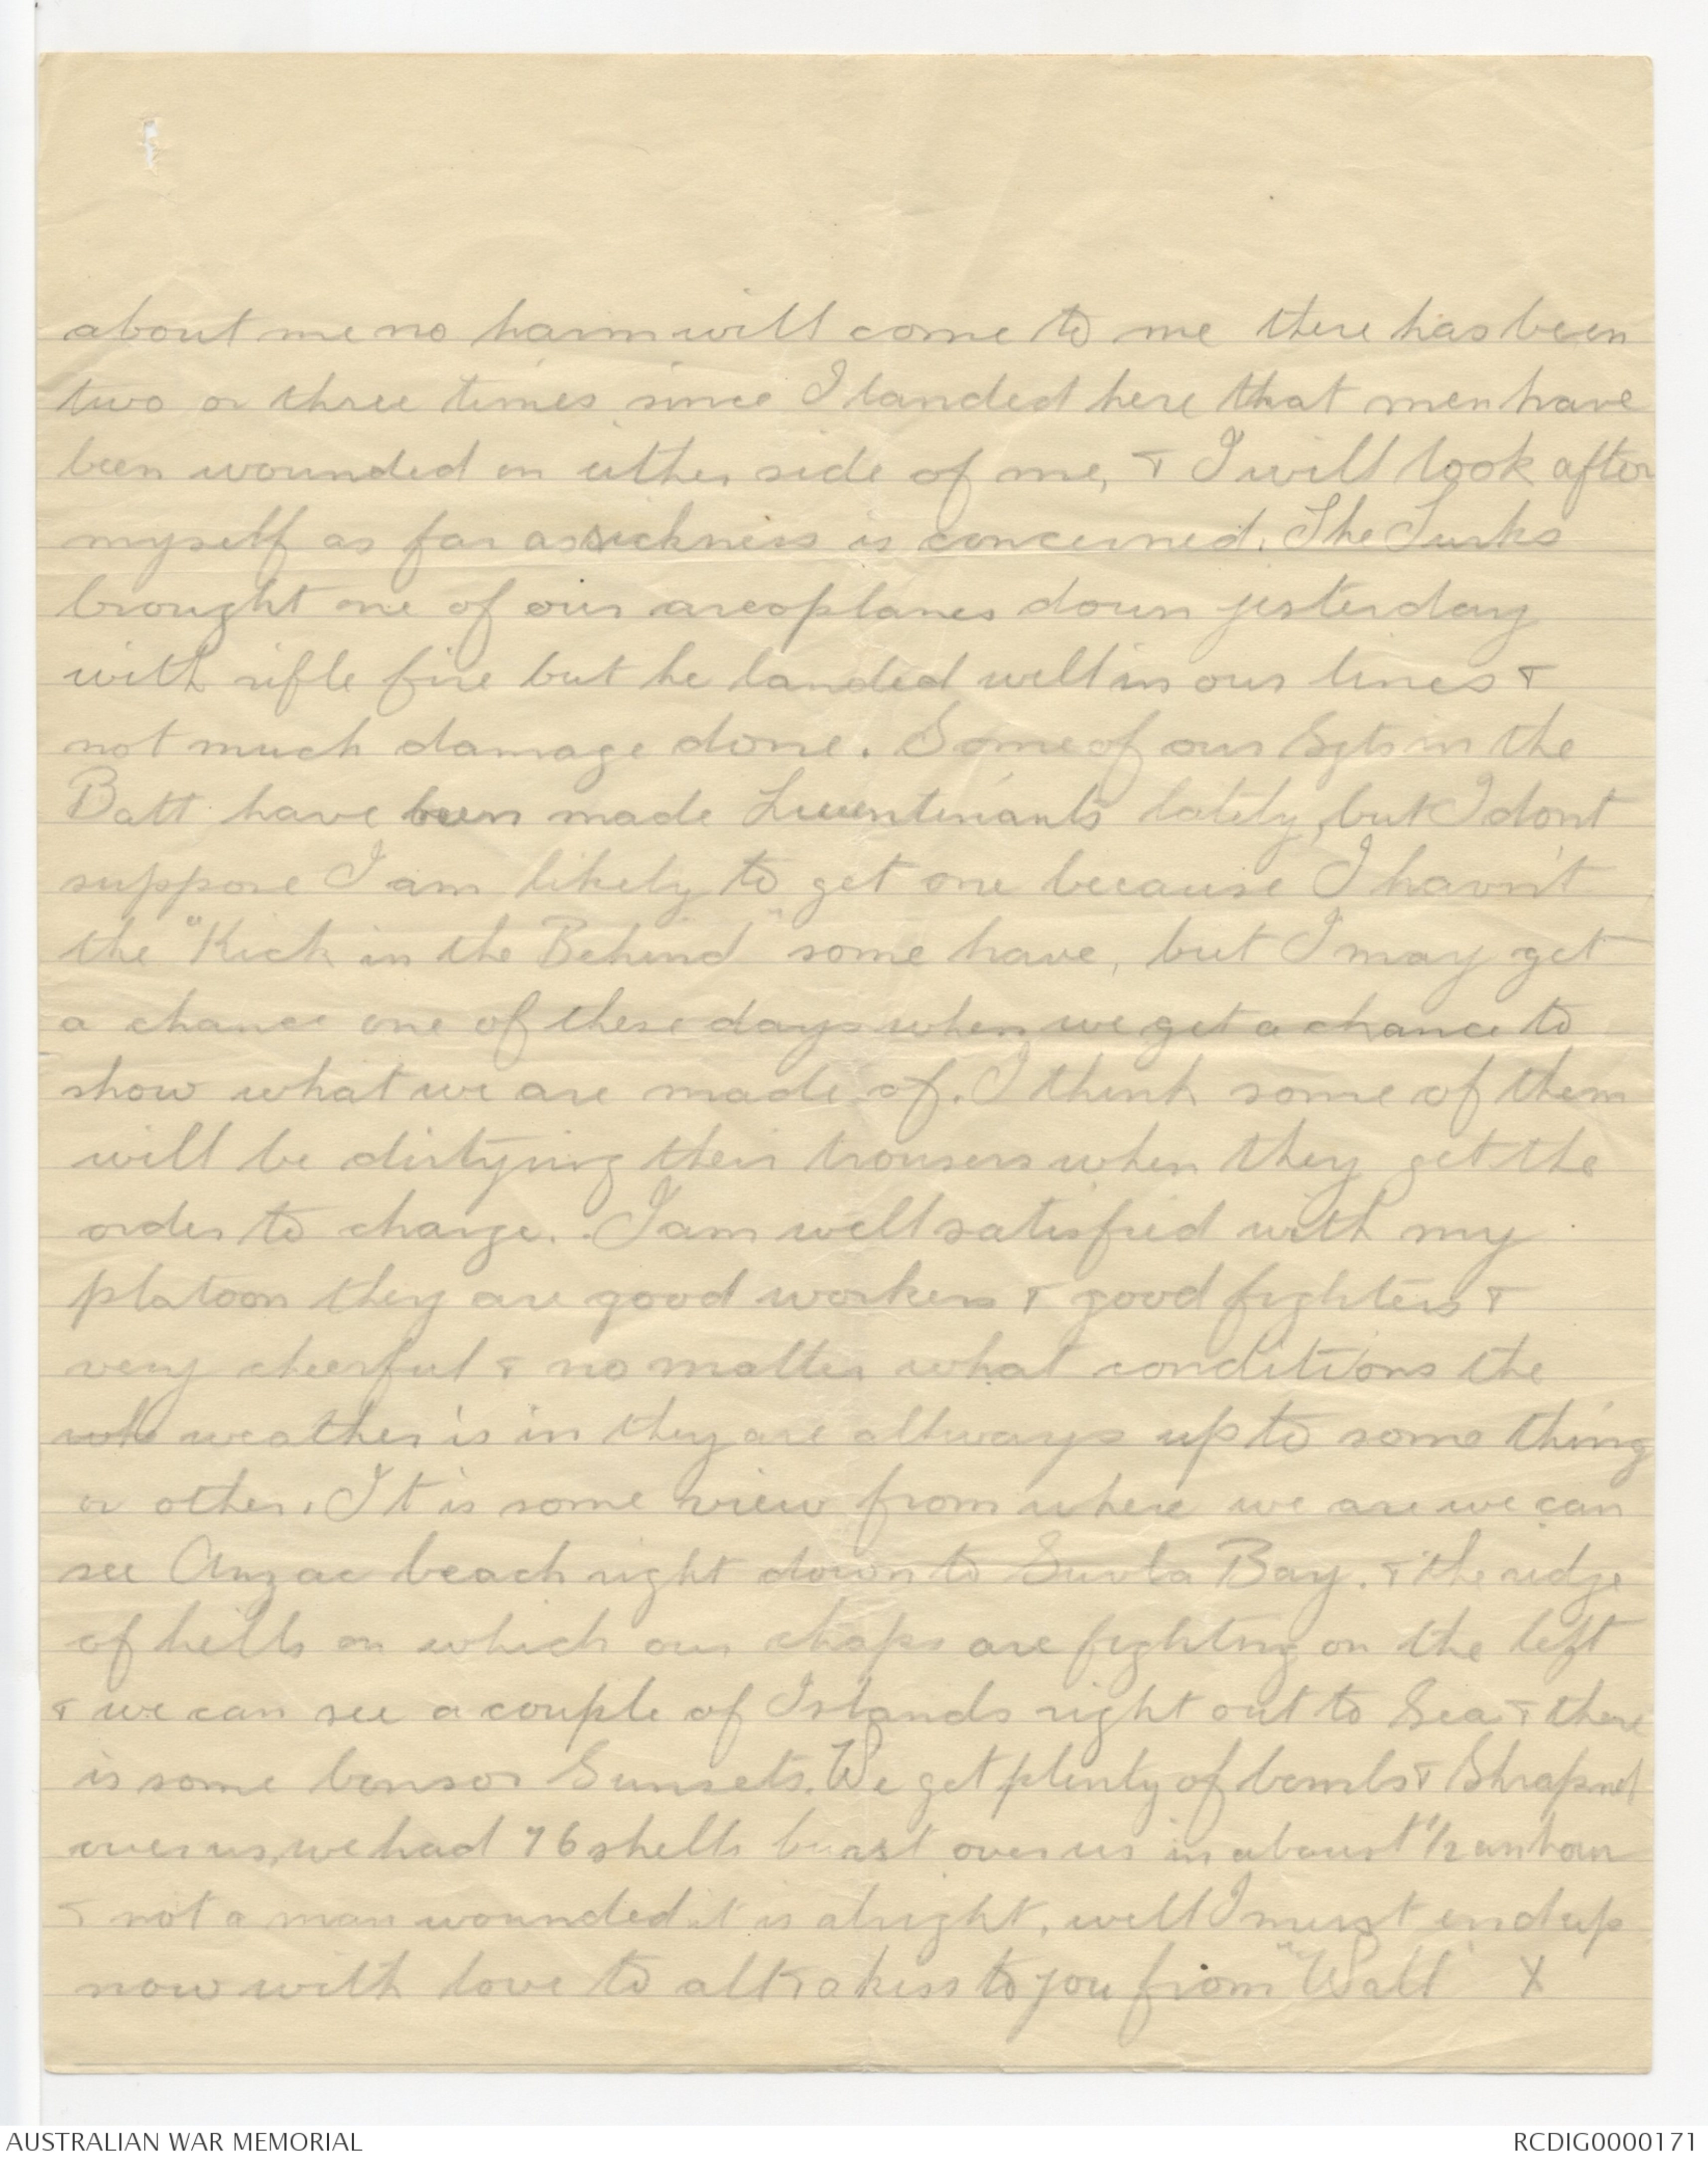 about me no harm will come to me there has been
two or three times since I landed here that men have
been wounded on either side of me, & I will look after
myself as far as sickness is concerned. The Turks
brought one of our areoplanes down yesterday
with rifle fire but he landed well in our lines &
not much damage done. Some of our Sgts in the
Batt have been made Lieuentinants lately, but I dont
suppose I am likely to get one because I havn't
the "Kick in the Behind" some have, but I may get
a chance one of these days when we get a chance to
show what we are made of. I think some of them
will be dirtying their trousers when they get the
order to charge. I am well satisfied with my
platoon they are good workers & good fighters &
very cheerful & no matter what conditions the
weather is in they are allways up to some thing
or other. It is some view from where we are we can
see Anzac beach right down to Suvla Bay. & the ridge
of hills on which our chaps are fighting on the left
& we can see a couple of Islands right out to Sea & there
is some bonsor Sunsets. We get plenty of bombs & Shrapnel
over us, we had 76 shells burst over us in about 1/2 an hour
& not a man wounded it is alright, well I must end up
now with love to all & a kiss to you from "Walt" X
AUSTRALIAN WAR MEMORIAL
RCDIG0000171